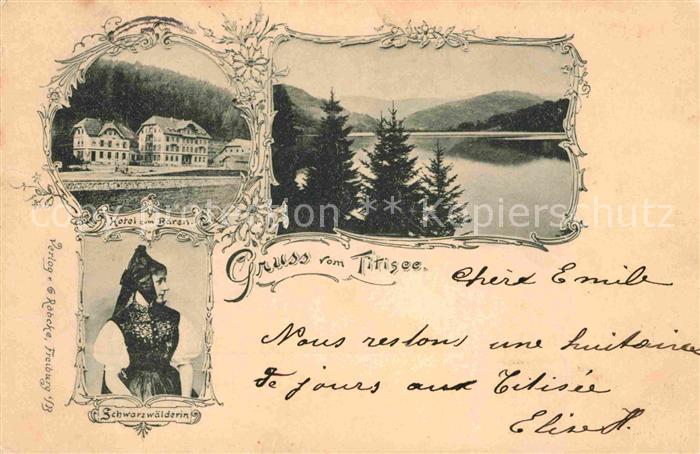 Hotel zum Bären.
Gruss vom Titisee.
Schwarzwälderin
Verlag v. G Rabcke, Freiburg i/B
Chère Emile
Nous restons une huitaine
de jours aux Titisée
Elise H.
copyright by Kunst & Kopierschutz